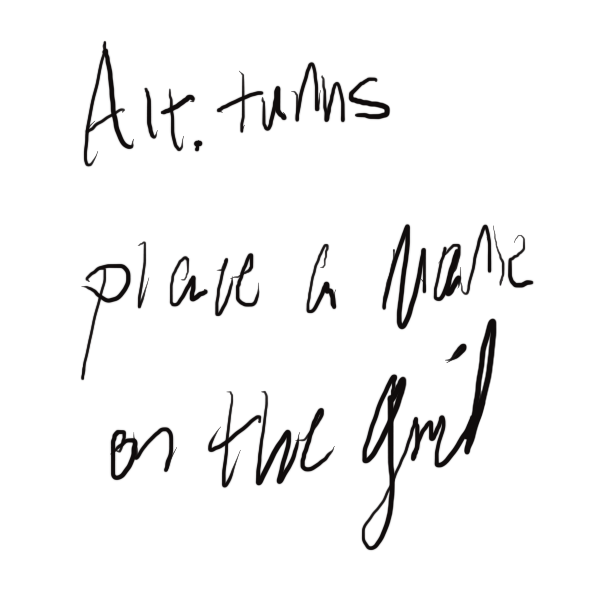 Alt. turns
place a mark
on the grid